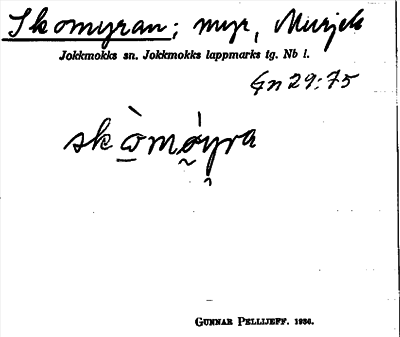 Skomyran; myr, Murjek
Jokkmokks sn. Jokkmokks lappmarks tg. Nb l.
Gn 29:75
skò̲mǿ̰yra
GUNNAR PELLIJEFF. 1936.